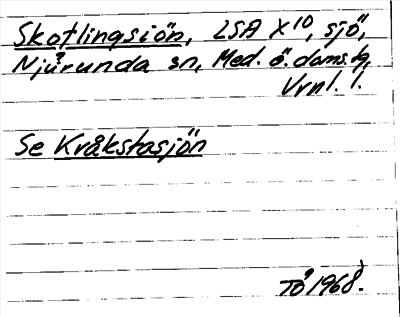 Skotlingsjön, LSA X 10, sjö,
Njurunda sn, Med. ö. doms.tg,
Vrnl. l.
Se Kråkstasjön
TÖ 1968.